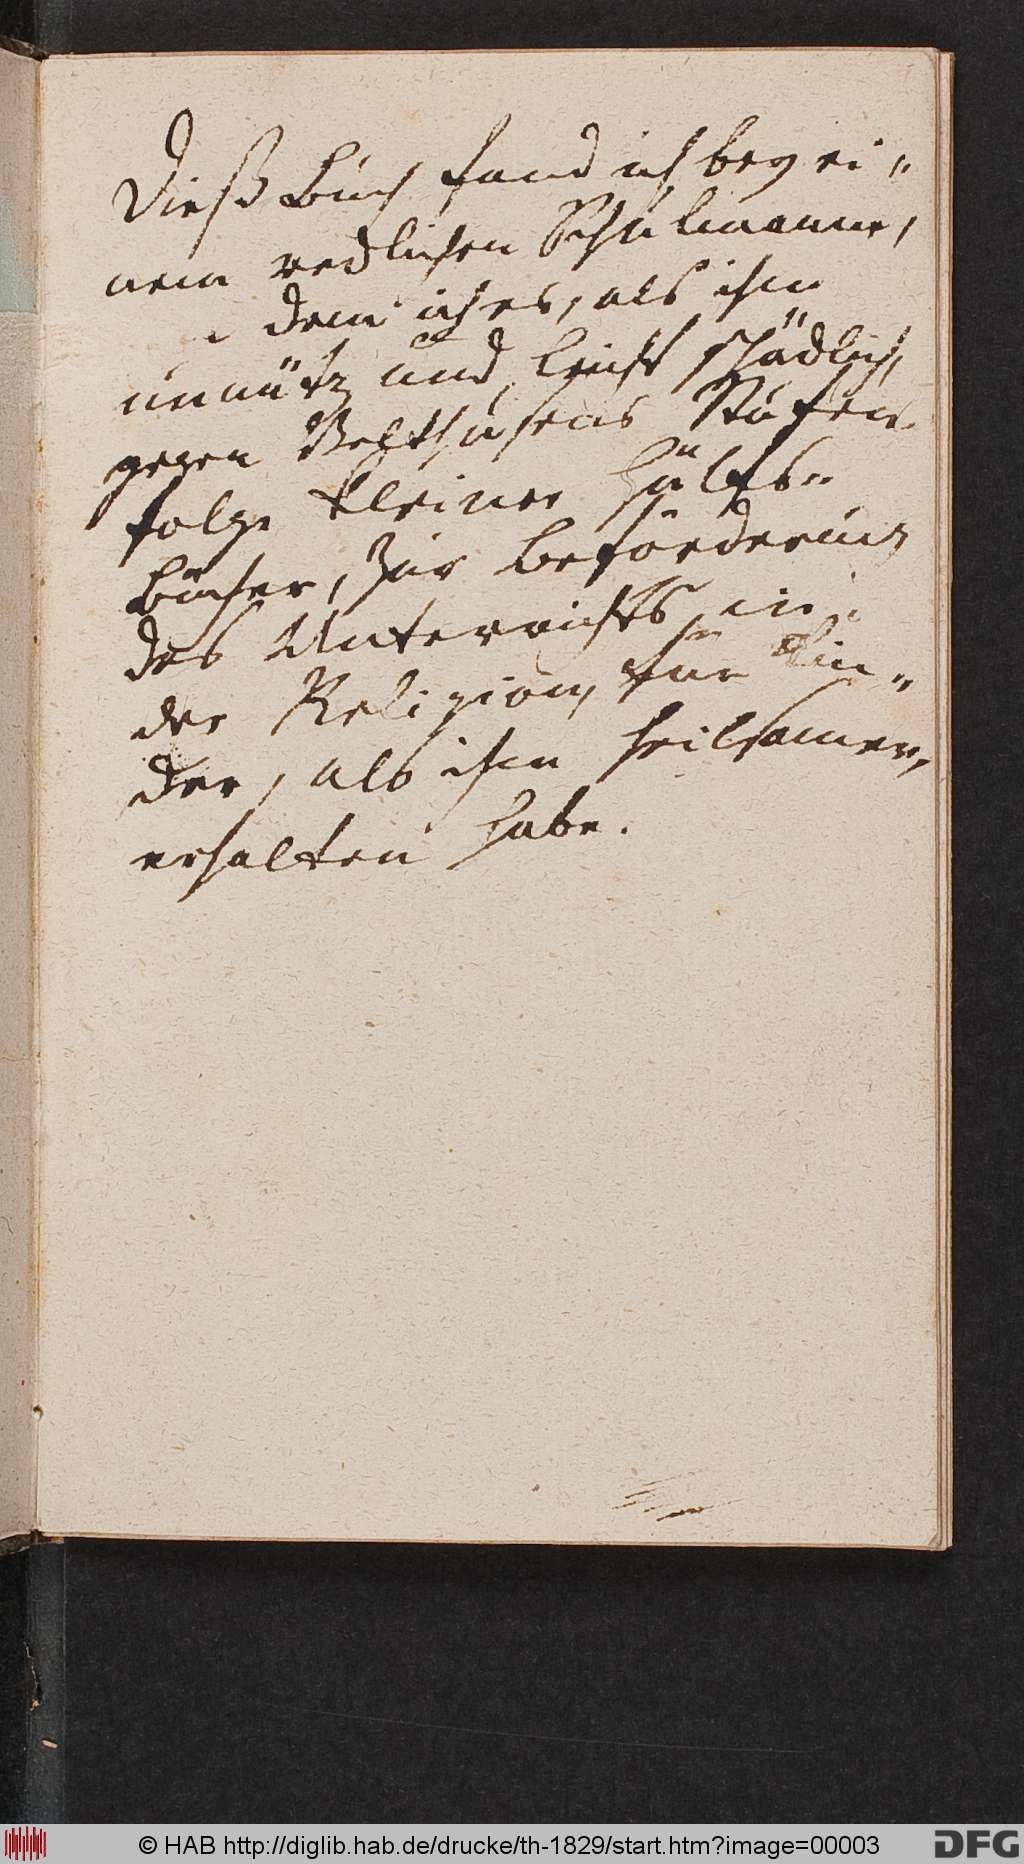 Dieß Buch fand ich bey ei„
nem redlichen Schulmanne,
dem ich es, als ihm
unnütz und leicht schädlich,
gegen Velthusens Stufen„
folge kleiner Hülfs„
Bücher, zur Beförderung
des Unterrichts in
der Religion, für Kin„
der, als ihm heilsamer,
erhalten habe.
© HAB http://diglib.hab.de/drucke/th-1829/start.htm?image=00003
DFG